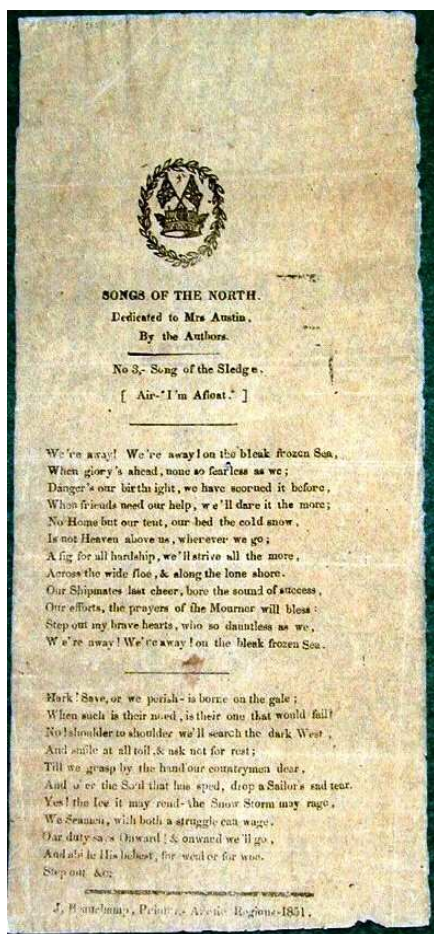 SONGS OF THE NORTH.
Dedicated to Mrs Austin,
By the Authors.
No 3,- Song of the Sledge.
[ Air-"I'm Afloat." ]
We're away! We're away! on the bleak frozen Sea,
When glory's ahead, none so fearless as we;
Danger's our birthright, we have scorned it before,
When friends need our help, we'll dare it the more;
No Home but our tent, our bed the cold snow,
Is not Heaven above us, wherever we go;
A fig for all hardship, we'll strive all the more,
Across the wide floe, & along the lone shore.
Our Shipmates last cheer, bore the sound of success,
Our efforts, the prayers of the Mourner will bless:
Step out my brave hearts, who so dauntless as we,
We're away! We're away! on the bleak frozen Sea.
Hark! Save, or we perish- is borne on the gale;
When such is their need, is their one that would fail?
No! shoulder to shoulder we'll search the dark West,
And smile at all toil, & ask not for rest;
Till we grasp by the hand our countrymen dear,
And o'er the Soul that has sped, drop a Sailor's sad tear.
Yes! the Ice it may rend- the Snow Storm may rage,
We Seamen, with both a struggle can wage,
Our duty says Onward! & onward we'll go,
And abide His behest, for weal or for woe.
Step out &c;
J, Beauchamp, Printer, Arctic Regions-1851.